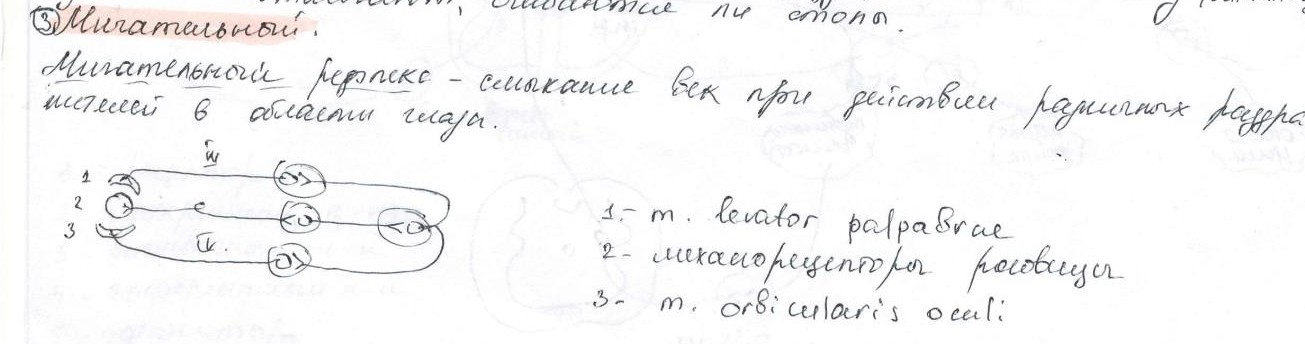 ли стопы.
③ Мигательный.
Мигательный рефлекс – смыкание век при действии различных раздра
жителей в области глаза.
III
1
2
3
1 - m. levator palpabrae
2 - механорецепторы роговицы
3 - m. orbicularis oculi